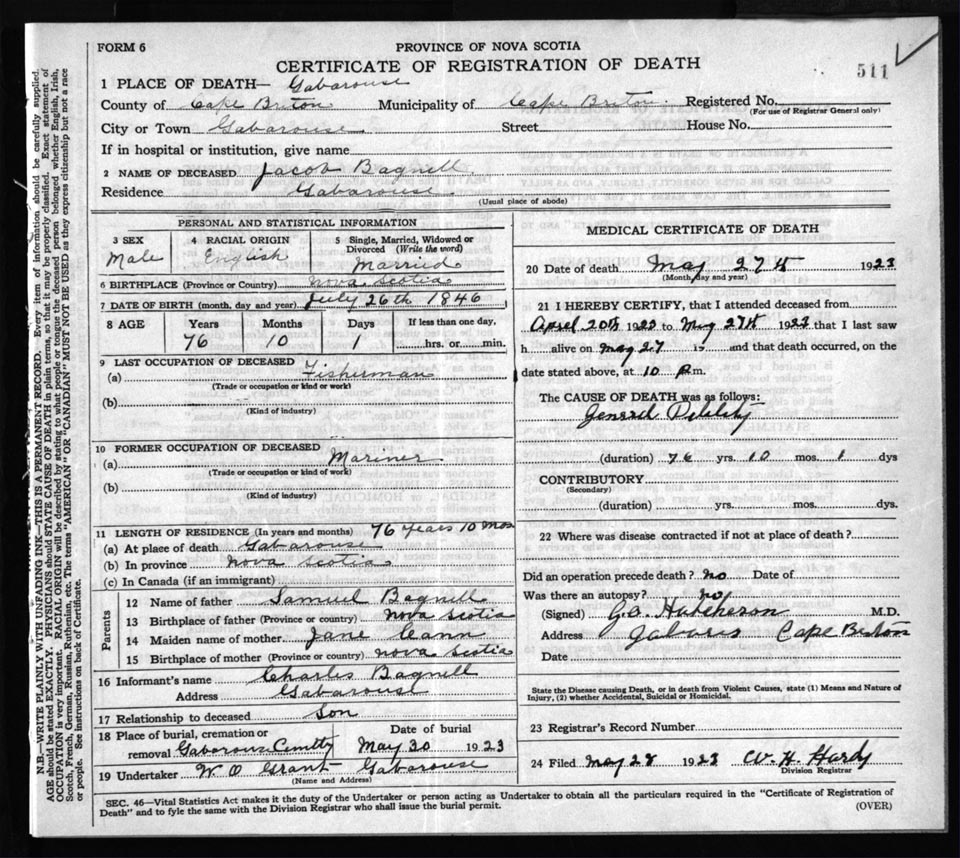 FORM 6
PROVINCE OF NOVA SCOTIA
CERTIFICATE OF REGISTRATION OF DEATH
511
1 PLACE OF DEATH— Gabarouse
County of Cape Breton Municipality of Cape Breton Registered No.
(For use of Registrar General only)
City or Town Gabarouse Street House No.
If in hospital or institution, give name
2 NAME OF DECEASED Jacob Bagnell
Residence Gabarouse
(Usual place of abode)
PERSONAL AND STATISTICAL INFORMATION
3 SEX 4 RACIAL ORIGIN 5 Single, Married, Widowed or
Divorced (Write the word)
Male English Married
6 BIRTHPLACE (Province or Country) Nova Scotia
7 DATE OF BIRTH (month, day and year) July 26th 1846
8 AGE Years Months Days If less than one day,
76 10 1 hrs. or min.
9 LAST OCCUPATION OF DECEASED
(a) Fisherman
(Trade or occupation or kind of work)
(b)
(Kind of industry)
10 FORMER OCCUPATION OF DECEASED
(a) Mariner
(Trade or occupation or kind of work)
(b)
(Kind of industry)
11 LENGTH OF RESIDENCE (In years and months) 76 years 10 mos
(a) At place of death Gabarouse
(b) In province Nova Scotia
(c) In Canada (if an immigrant)
Parents
12 Name of father Samuel Bagnell
13 Birthplace of father (Province or country) Nova Scotia
14 Maiden name of mother Jane Cann
15 Birthplace of mother (Province or country) Nova Scotia
16 Informant's name Charles Bagnell
Address Gabarouse
17 Relationship to deceased Son
18 Place of burial, cremation or Date of burial
removal Gabarouse May 30 1923
19 Undertaker W O Grant Gabarouse
(Name and Address)
MEDICAL CERTIFICATE OF DEATH
20 Date of death May 27th 1923
(Month, day and year)
21 I HEREBY CERTIFY, that I attended deceased from
April 20th 1923 to May 27th 1923 that I last saw
h alive on May 27 19 and that death occurred, on the
date stated above, at 10 P.m.
The CAUSE OF DEATH was as follows:
General Debility
(duration) 76 yrs. 10 mos. 1 dys
CONTRIBUTORY
(Secondary)
(duration) yrs. mos. dys
22 Where was disease contracted if not at place of death?
Did an operation precede death? no Date of
Was there an autopsy? no
(Signed) Hutcheson M.D.
Address Cape Breton
Date
State the Disease causing Death, or in death from Violent Causes, state (1) Means and Nature of
Injury, (2) whether Accidental, Suicidal or Homicidal.
23 Registrar's Record Number
24 Filed May 28 1923 W. H. Hardy
Division Registrar
SEC. 46—Vital Statistics Act makes it the duty of the Undertaker or person acting as Undertaker to obtain all the particulars required in the "Certificate of Registration of
Death" and to fyle the same with the Division Registrar who shall issue the burial permit.
(OVER)
N.B.—WRITE PLAINLY WITH UNFADING INK—THIS IS A PERMANENT RECORD. Every item of information should be carefully supplied.
AGE should be stated EXACTLY. PHYSICIANS should STATE CAUSE OF DEATH in plain terms, so that it may be properly classified. Exact statement of
OCCUPATION is very important. RACIAL ORIGIN will be described by stating to what people or tongue the deceased person belonged whether English, Irish,
Scotch, French, German, Russian, Ruthenian, etc. The terms "AMERICAN" OR "CANADIAN" MUST NOT BE USED as they express citizenship but not a race
or people. See instructions on back of Certificate.